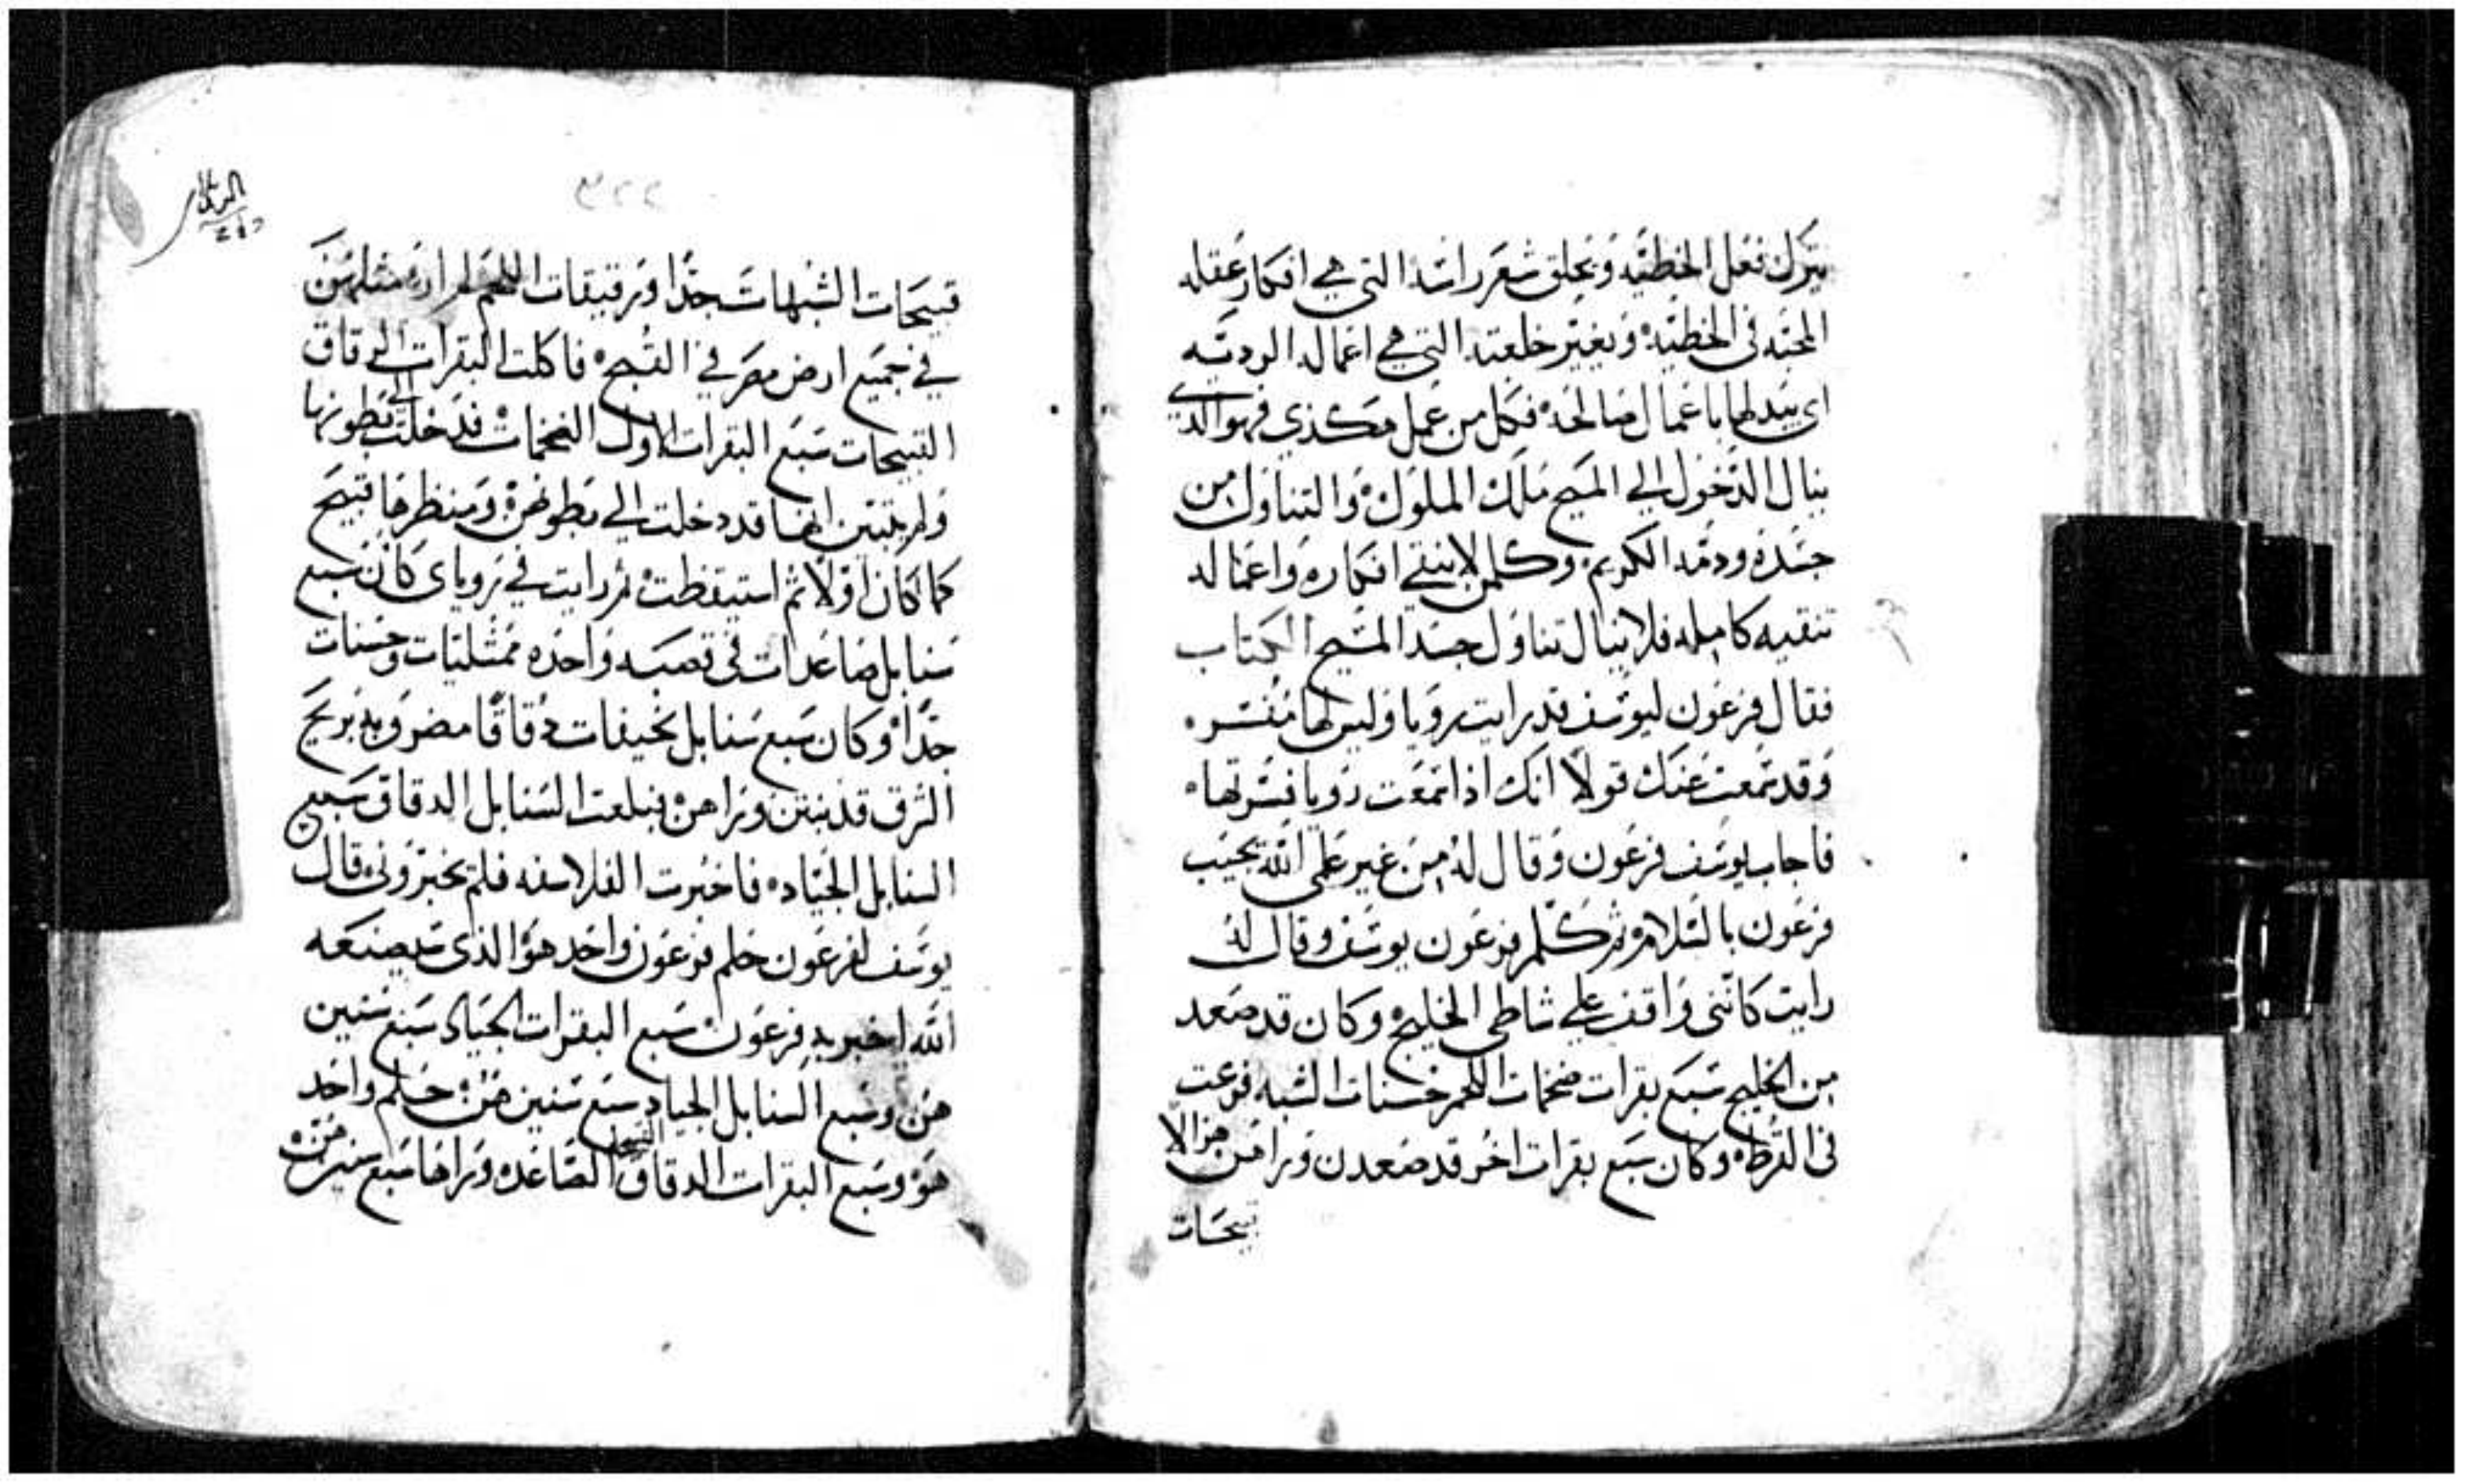 يترك فعل الخطيّه وَيحلق شعَر راسَه التي هي افكار عَقله
المحبّه في الخطيّه وَيغيّر خلعته التي هي اعماله الرديّه
اي يبدلها باعمال صالحه فكل من عَمل هكذي فهوَ الذي
ينال الدّخول الي المسَيح مَلك الملوك وَالتناوَل من
جسَده ودمَه الكريم وكلمن لا ينقي افكاره وَاعماله
تنقيه كامله فلا ينال تناوَل جسَد المسَيح الكتاب
فقال فرعَون ليوسَف قد رايت رويا وَليس لها مُفسّر
وَقد سَمعت عَنك قولاً انك اذا سَمعَت رويا فسّرتها
فاجاب يوسَف فرعَون وَقال لهُ من غير عَلمي الله يجيَب
فرعَون بالسَلامه ثم كلم فرعَون يوسَف وقال لهُ
رايت كانني وَاقف علي شاطي الخليج وكان قد صَعد
من الخليج سَبَع بقرات ضخمات اللحم حَسنات الشبه فرعت
في القرط وكان سَبع بقرات اخر قد صَعدن وَراهن هزالا
قبيحَات
٢٢٣
قبيحَات الشبهات جدًا وَرقيقات اللحم لم ار مثلهن
في جميَع ارض مصَر في القُبح فاكلت البقرات الرقاق
القبيحات سَبَع البقرات الاول الضخمات فدخلت الي بطونها
وَلم يتبيّن انها قد دخلت الي بطونهن وَمنظرها قبيح
كما كان اوّلاً ثم استيقظت ثم رايت في رَوياي كان سَبع
سَنابل صَاعدات في قصبَه وَاحده ممتليات وحسَنات
جدًا وَكان سَبع سَنابل نحيفات دُقاقًا مضروبه بريح
الشرق قد نبتن وَراهن فبلعت السَنابل الدقاق سَبع
السنابل الجيّاد فاخبرت الفلاسفه فلم يخبرُوني قال
يوسَف لفرعَون حَلم فرعَون وَاحد هوَ الذي سَيصنعَه
الله اخبر به فرعَون سَبع البقرات الجيَاد سَبع سَنين
هن وسَبع السَنابل الجياد سَبع سَنين هنَّ حَلم وَاحد
هوَ وسَبع البقرات الدقاق القبيحات الصَاعده وَراها سَبع سَنين هنَّ